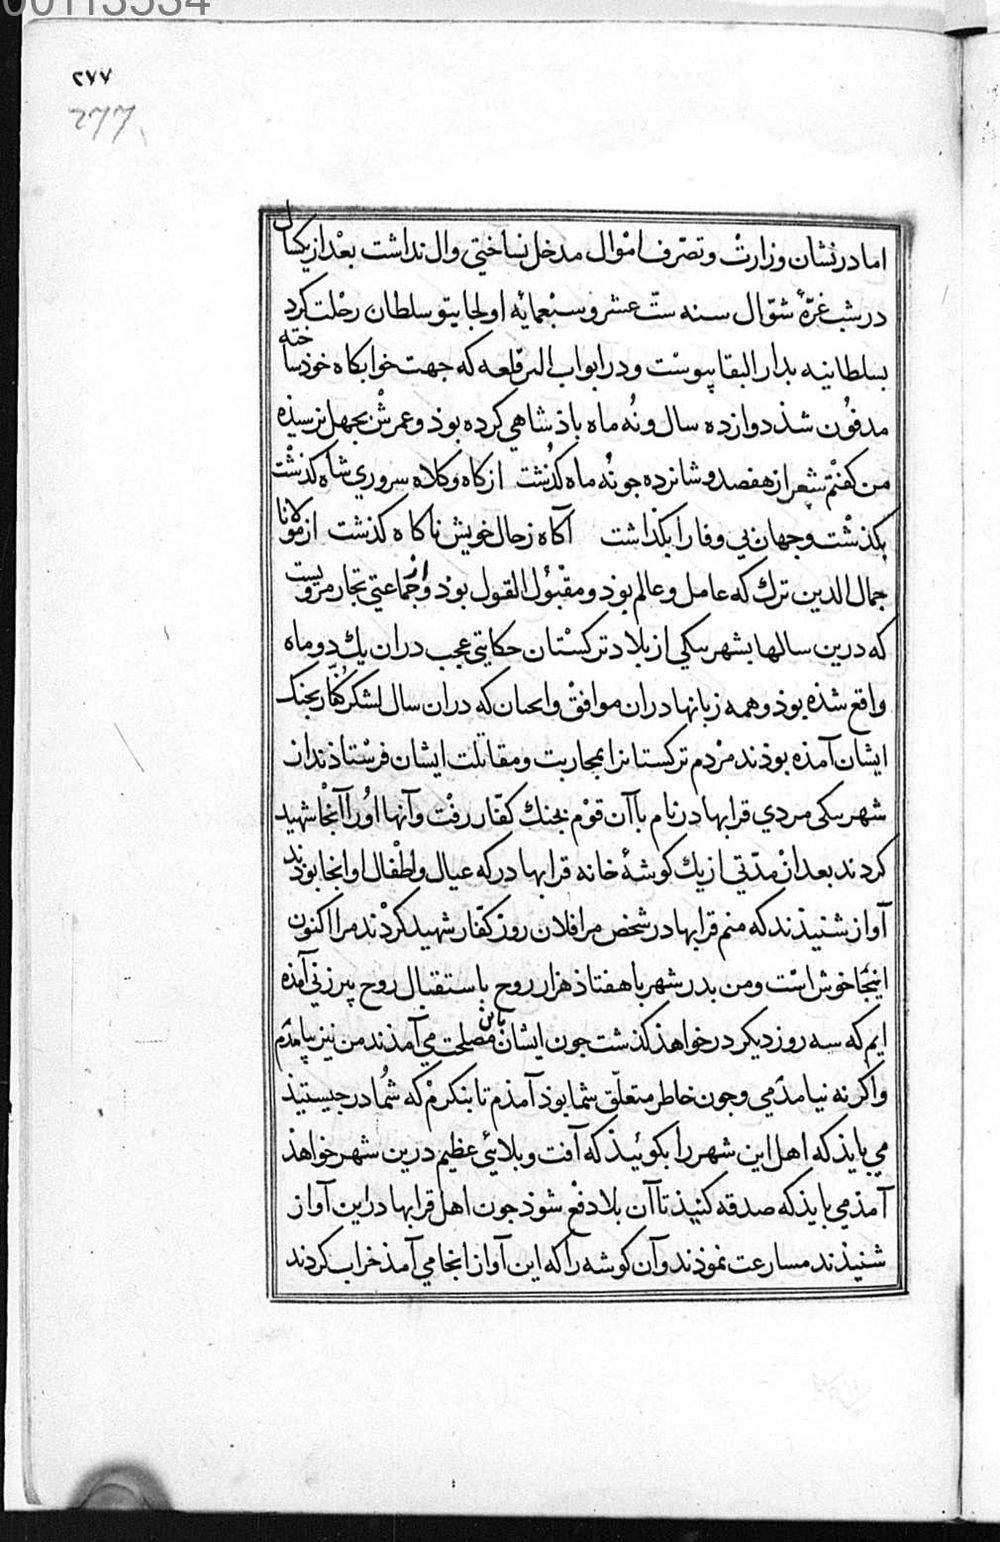 00113534
٢٧٧
277
اما در نشان وزارت و تصرّف اموال مدخل نساختی و ال نداشت بعد از یکسال
در شب غرّهٔ شوّال سنه ستّ عشر و سبعمایٔه اولجایتو سلطان رحلت کرد
بسلطانیه بدار البقا پیوست و در ابواب البرّ قلعه که جهت خوابکاه خوذ ساخته
مدفون شذ دوازده سال و نُه ماه باذشاهی کرده بوذ و عمرش بجهل نرسیذه
من کفتم شعر از هفصد و شانزده جو نُه ماه کذشت از کاه و کلاه سروری شاه کذشت
بکذشت و جهان بی وفا را بکذاشت آکاه ز حال خویش ناکاه کذشت از مولانا
جمال الدین ترک که عامل و عالم بوذ و مقبُول القول بوذ و از جماعتی تجار مرویست
که درین سالها بشهر ینکی از بلاد ترکستان حکایتی عجب در ان یک دو ماه
واقع شذه بوذ و همه زبانها در ان موافق و ان که در ان سال لشکر کفّار بجنک
ایشان آمذه بوذند مردم ترکستان را بمحاربت و مقاتلت ایشان فرستاذند از
شهر ینکی مردی قرابهادر نام با آن قوم بجنک کفّار رفت و آنها او را آنجا شهید
کردند بعد از مدّتی از یک کوشهٔ خانه قرابهادر که عیال و اطفال او انجا بوذند
آواز شنیذند که منم قرابهادر شخص مرا فلان روز کفّار شهید کردند مرا اکنون
اینجا خوش است و من بدر شهر با هفتاذ هزار روح باستقبال روح پیر زنی آمذه
ایم که سه روز دیکر در خواهذ کذشت جون ایشان باین مصلحت می آمذند من نیز بیامذم
و اکر نه نیامذمی و جون خاطر متعلّق شما بوذ آمذم تا بنکرم که شُما در جیستیذ
می بایذ که اهل این شهر را بکوئیذ که آفت و بلائی عظیم درین شهر خواهذ
آمذ می بایذ که صدقه کنیذ تا آن بلا دفع شوذ جون اهل قرابهادر این آواز
شنیذند مسارعت نموذند و آن کوشه را که این آواز انجا می آمذ خراب کردند